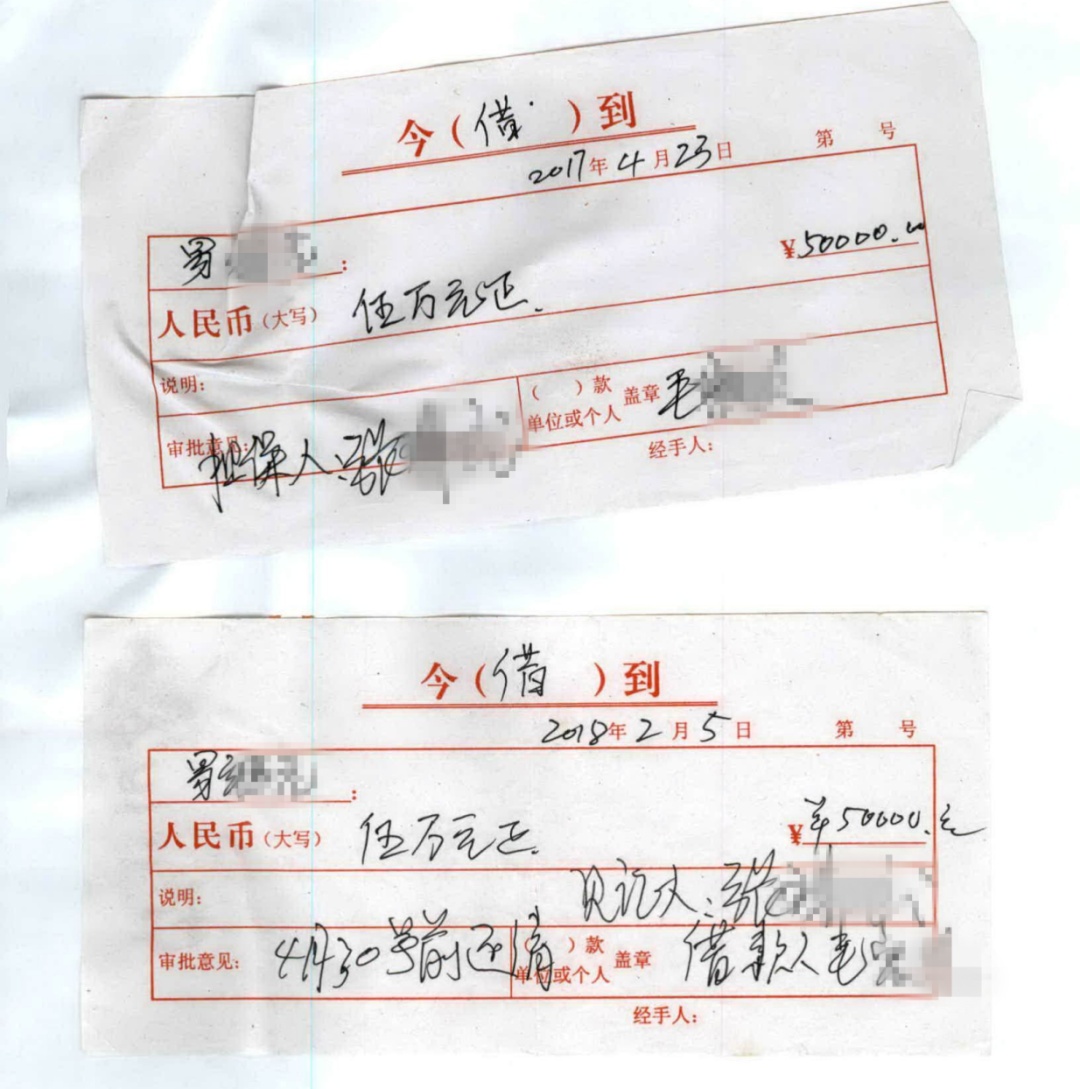 今(借)到
2017年4月23日 第 号
罗 : ¥50000.00
人民币(大写) 伍万元正.
说明:
( )款
单位或个人 盖章 毛
审批意见: 担保人:张
经手人:
今(借)到
2018年2月5日 第 号
罗 :
人民币(大写) 伍万元正. ¥ ¥50000.元
说明: 见证人:张
审批意见: 4月30号前还清 )款
单位或个人 盖章 借款人毛
经手人: